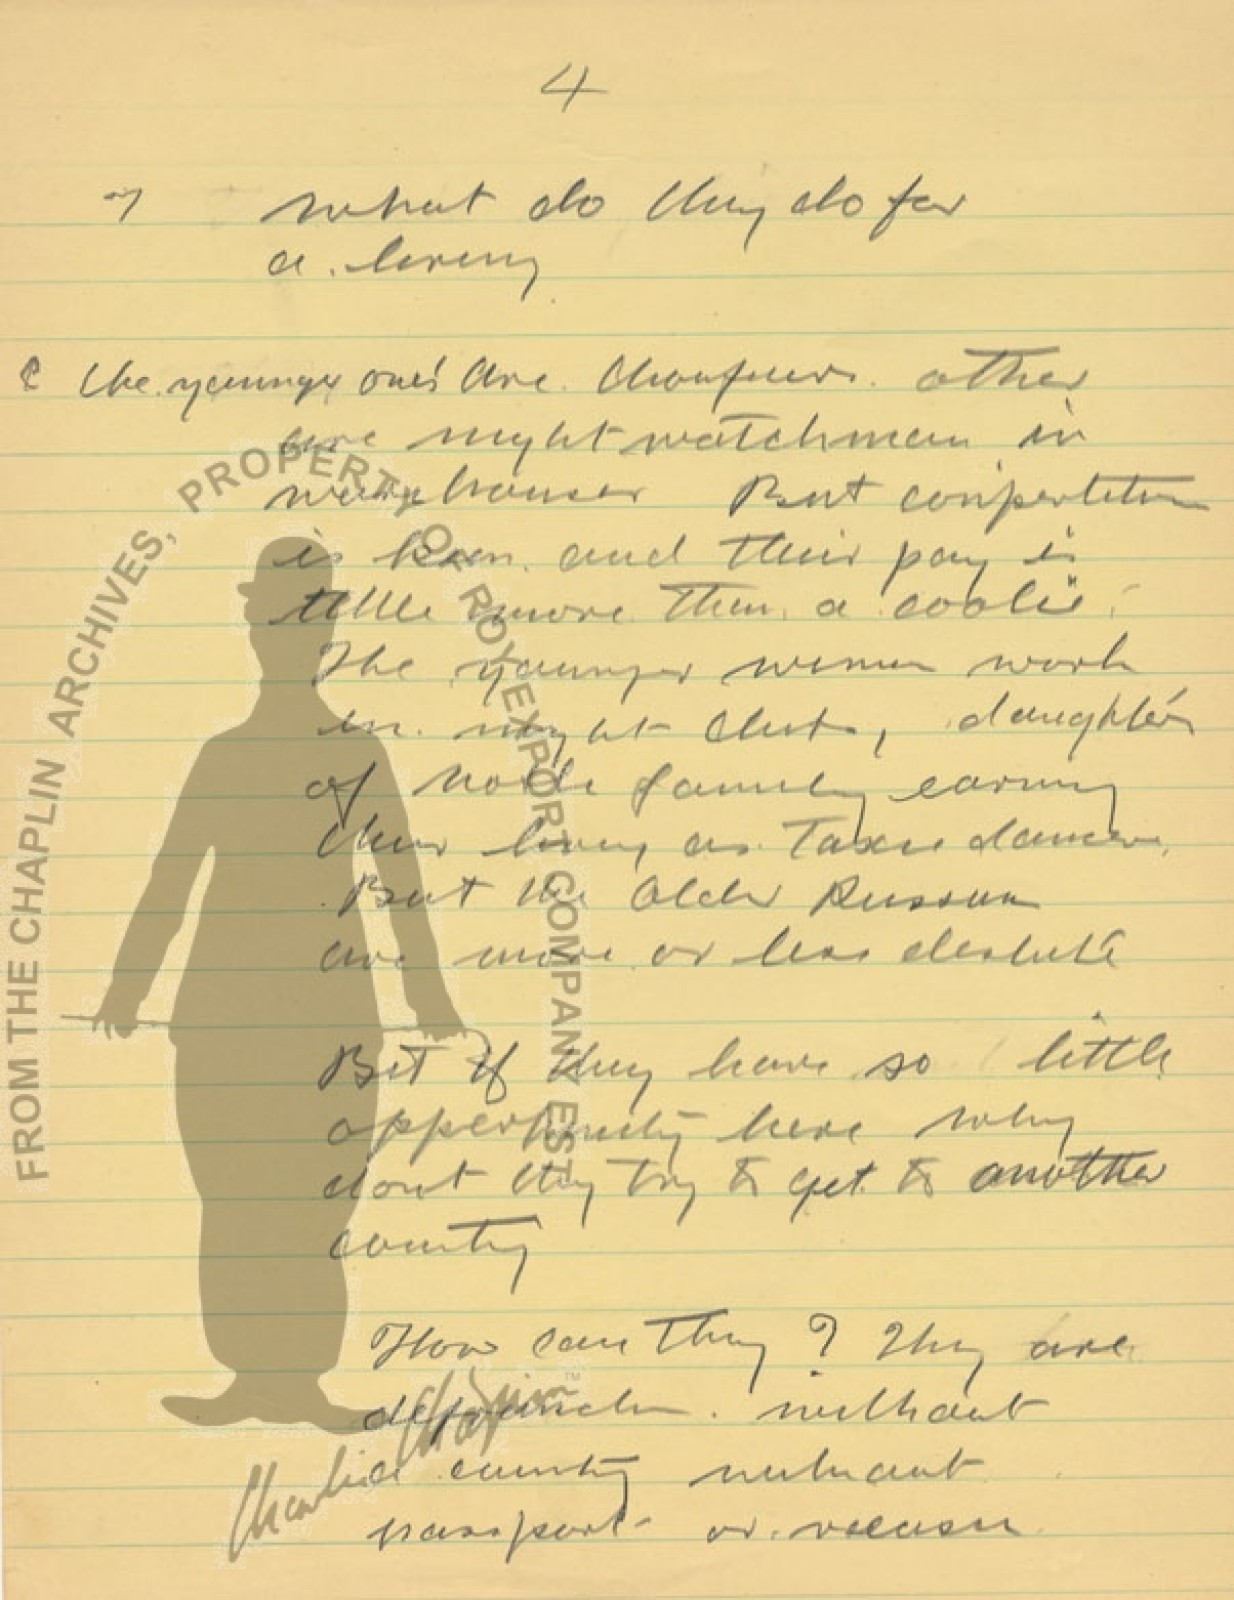 4
what do they do for
a living
C the younger one's are chauffeurs. other
are night watchman in
warehouses But competition
is keen. and their pay is
little more than a coolie.
The younger women work
in night clubs, daughters
of noble family earning
their living as taxie dancers.
But the older Russian
are more or less destitute
But if they have so little
opportunity here why
dont they try to get to another
country
How can they? They are
without
a country without
passport or
FROM THE CHAPLIN ARCHIVES, PROPERTY OF ROY EXPORT COMPANY EST.
Charlie Chaplin™